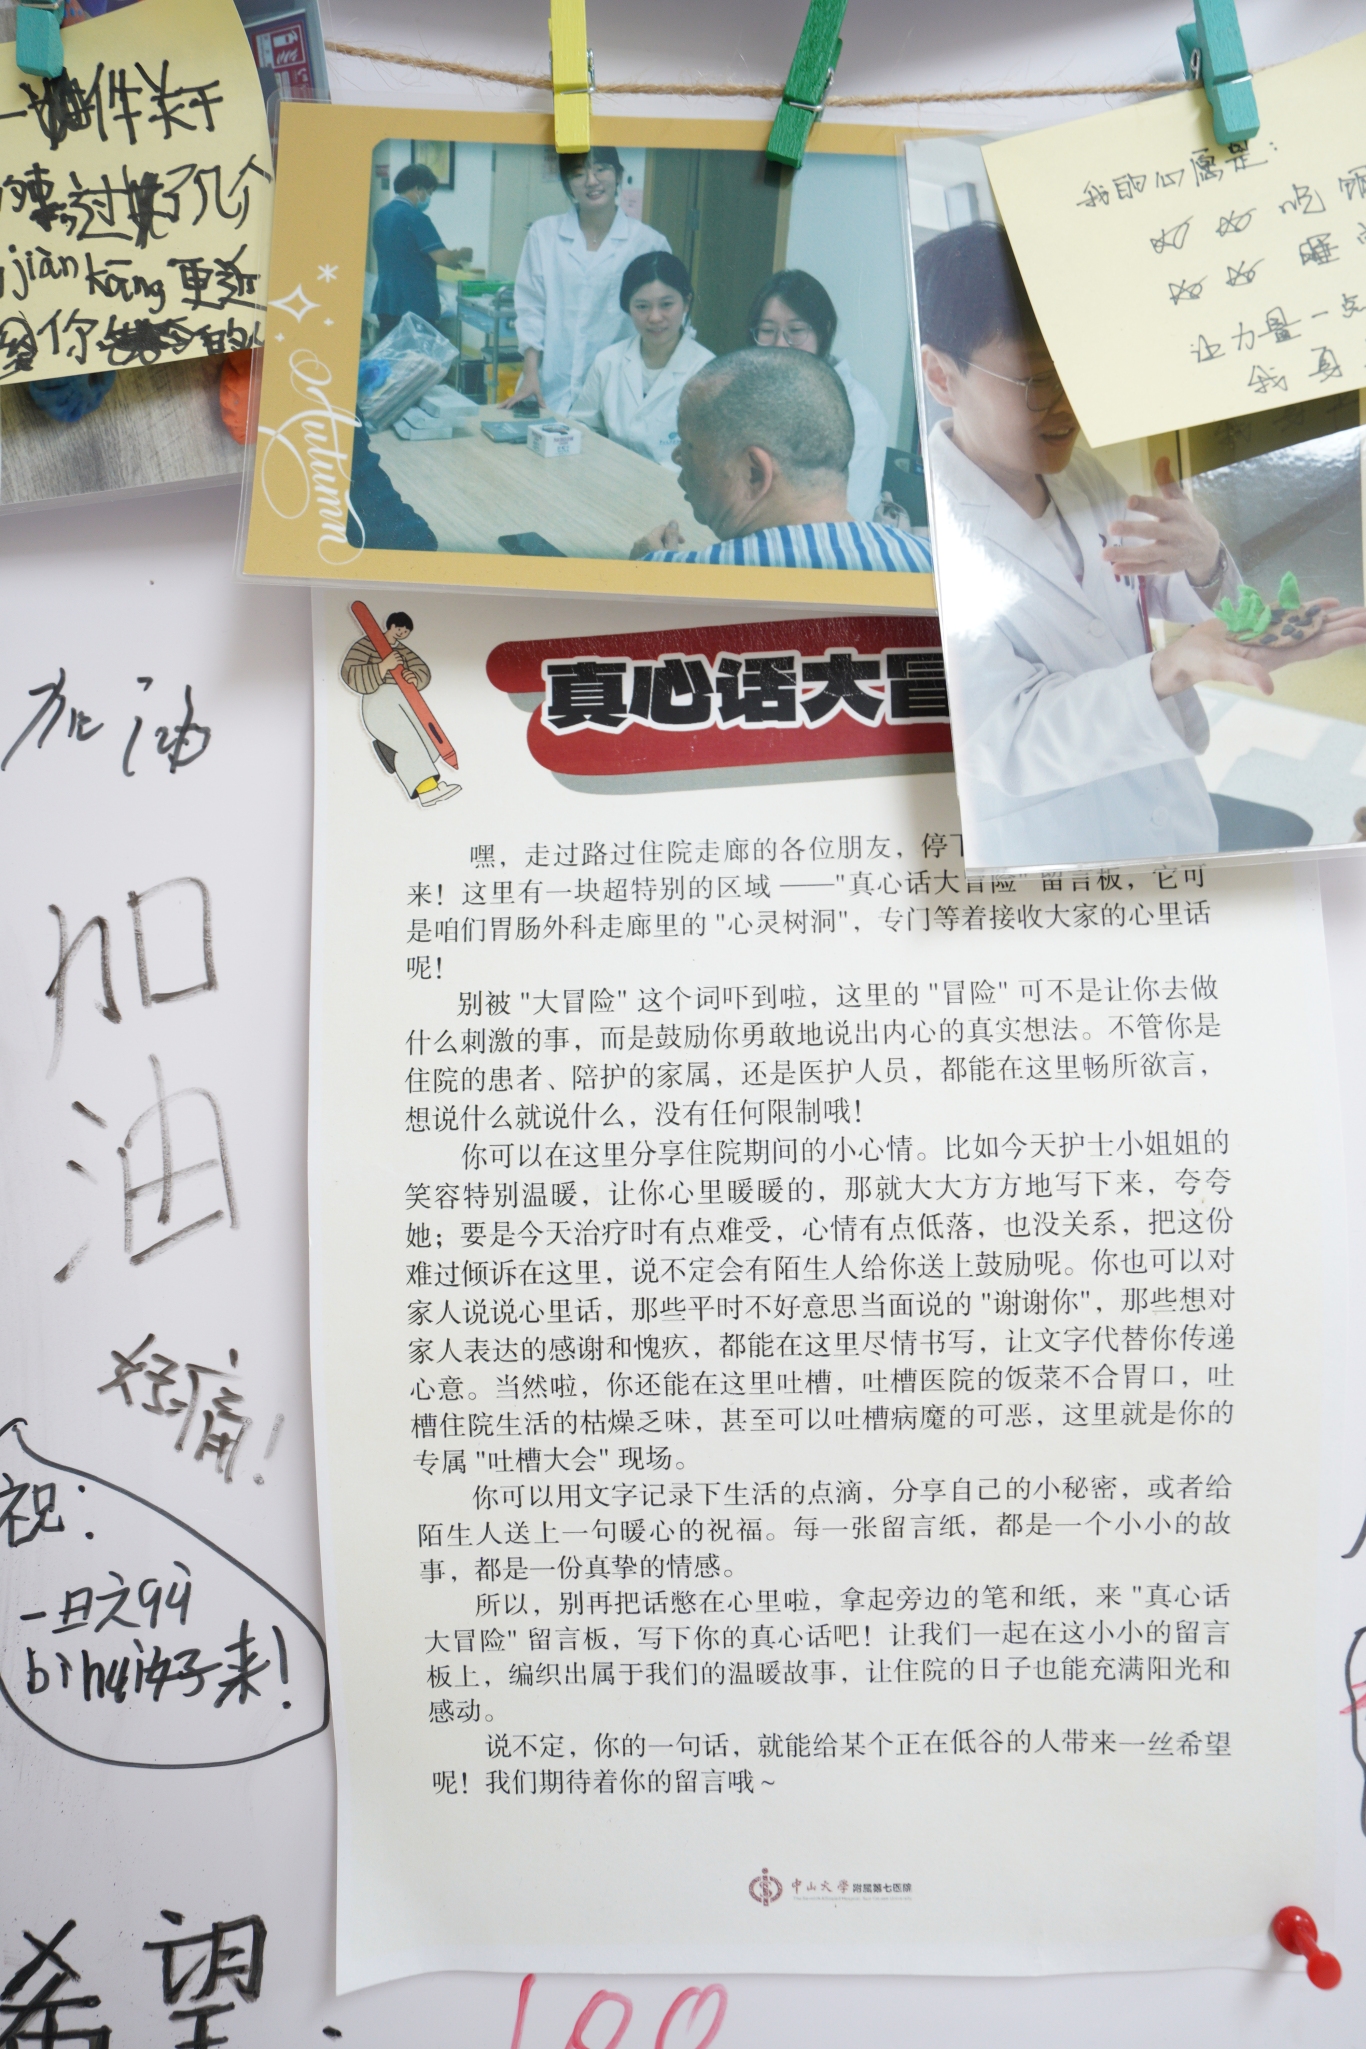 件关于
过 了几个
jiàn kāng 更近
你 的
我的心愿是：
好好吃饭
好好睡
让力量一点
我身
Autumn
真心话大冒
嘿，走过路过住院走廊的各位朋友，停下
来！这里有一块超特别的区域 ——"真心话大冒险" 留言板，它可
是咱们胃肠外科走廊里的 "心灵树洞"，专门等着接收大家的心里话
呢！
别被 "大冒险" 这个词吓到啦，这里的 "冒险" 可不是让你去做
什么刺激的事，而是鼓励你勇敢地说出内心的真实想法。不管你是
住院的患者、陪护的家属，还是医护人员，都能在这里畅所欲言，
想说什么就说什么，没有任何限制哦！
你可以在这里分享住院期间的小心情。比如今天护士小姐姐的
笑容特别温暖，让你心里暖暖的，那就大大方方地写下来，夸夸
她；要是今天治疗时有点难受，心情有点低落，也没关系，把这份
难过倾诉在这里，说不定会有陌生人给你送上鼓励呢。你也可以对
家人说说心里话，那些平时不好意思当面说的 "谢谢你"，那些想对
家人表达的感谢和愧疚，都能在这里尽情书写，让文字代替你传递
心意。当然啦，你还能在这里吐槽，吐槽医院的饭菜不合胃口，吐
槽住院生活的枯燥乏味，甚至可以吐槽病魔的可恶，这里就是你的
专属 "吐槽大会" 现场。
你可以用文字记录下生活的点滴，分享自己的小秘密，或者给
陌生人送上一句暖心的祝福。每一张留言纸，都是一个小小的故
事，都是一份真挚的情感。
所以，别再把话憋在心里啦，拿起旁边的笔和纸，来 "真心话
大冒险" 留言板，写下你的真心话吧！让我们一起在这小小的留言
板上，编织出属于我们的温暖故事，让住院的日子也能充满阳光和
感动。
说不定，你的一句话，就能给某个正在低谷的人带来一丝希望
呢！我们期待着你的留言哦～
中山大学附属第七医院
加油
加
油
祝：
好来！
希望
100